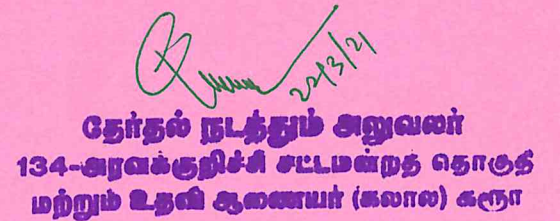 22/3/21
தேர்தல் நடத்தும் அலுவலர்
134-அரவக்குறிச்சி சட்டமன்றத் தொகுதி
மற்றும் உதவி ஆணையர் (கலால) கரூர்